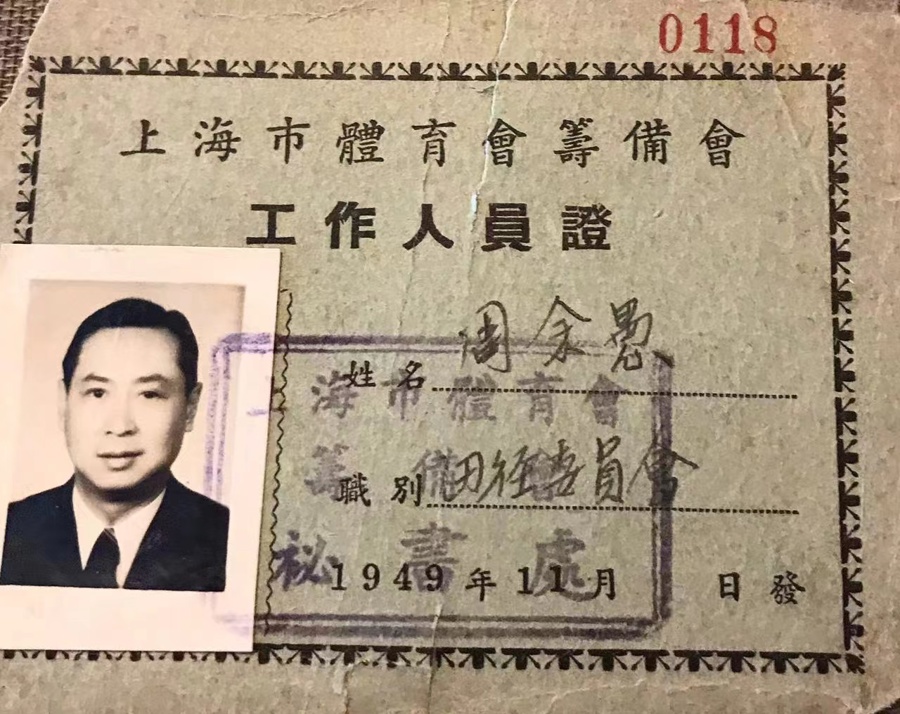 0118
上海市體育會籌備會
工作人員證
姓名 周余愚
職別 田徑委員會
1949年11月 日發
上海市體育會
籌備會
祕書處